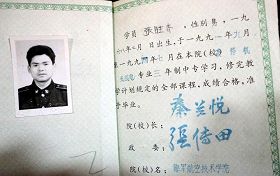 学员 张胜 ，性别男，一九
六八年 月 日出生，于一九九一年九月
至一九九四年七月在本院(校)
专业三年制中专学习，修完教
学计划规定的全部课程，成绩合格，准
予毕业。
院(校)长：秦兰悦
政 委：張传田
院(校)名：海军航空技术学院